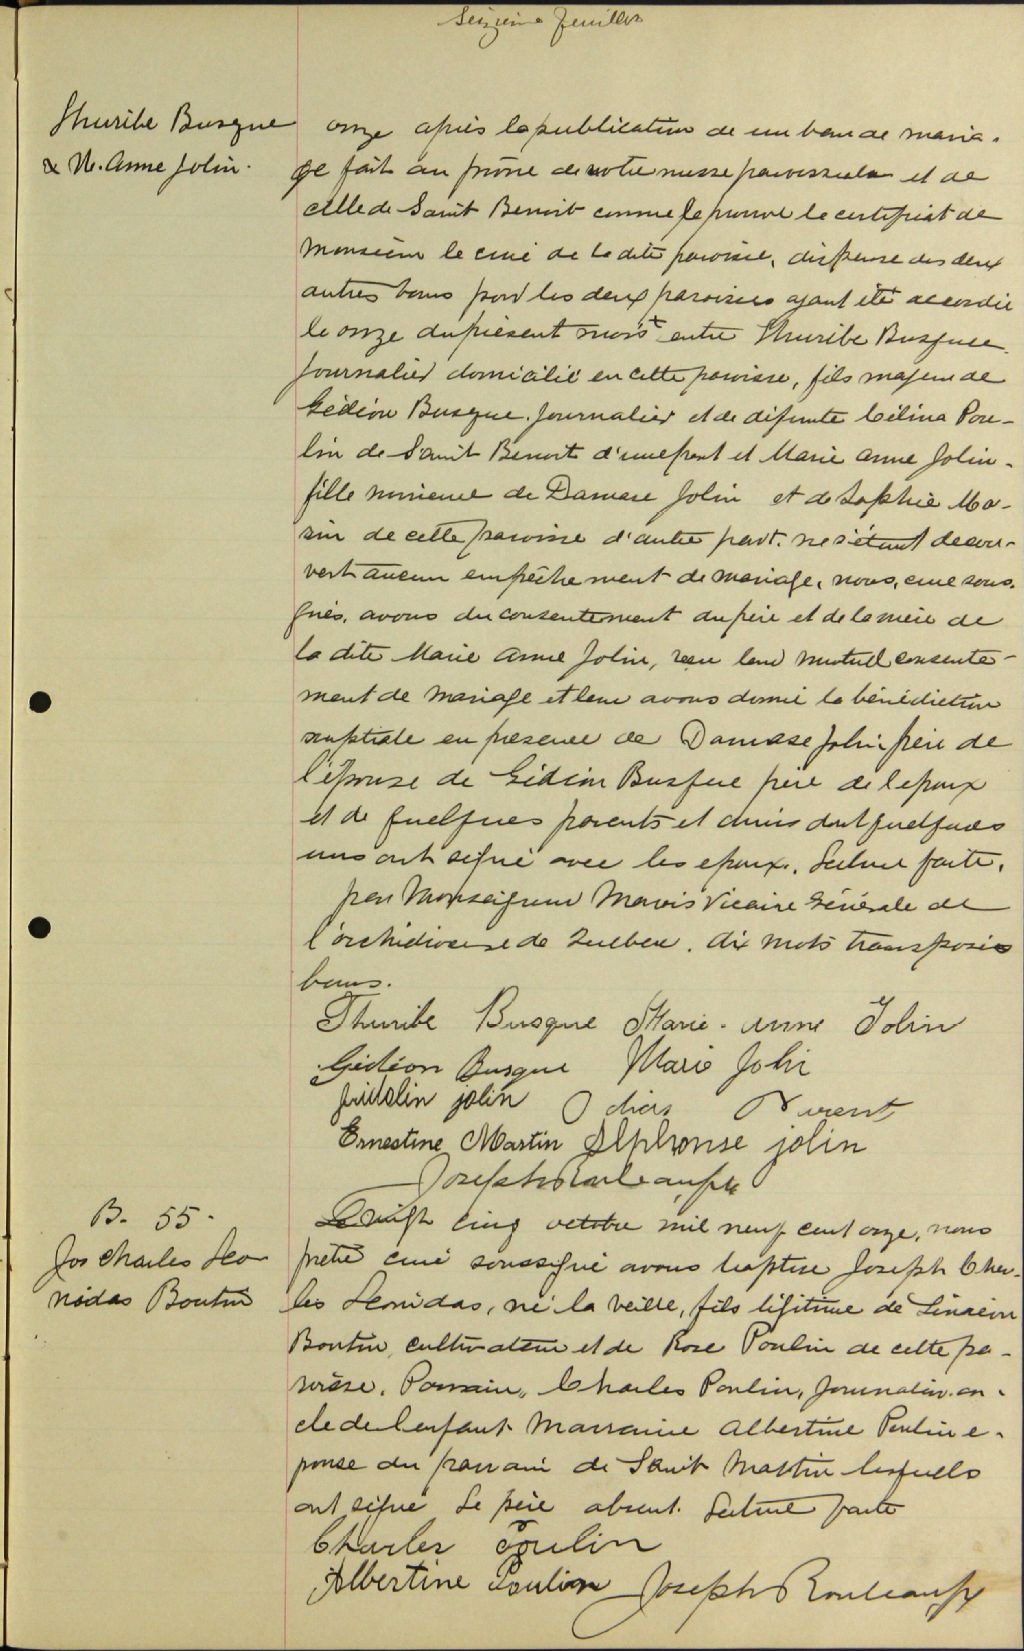 Seizième feuillet
Thuribe Busque
& M. Anne Jolin.
onze après la publication de un ban de maria-
ge fait au prône de notre messe paroissiale et de
celle de Saint Benoit comme le prouve le certificat de
Monsieur le curé de la dite paroisse, dispense des deux
autres bans pour les deux paroisses ayant été accordée
le onze du présent mois + entre Thuribe Busque
journalier domicilié en cette paroisse, fils majeur de
Gédéon Busque journalier et de défunte Célina Pou-
lin de Saint Benoit d'une part et Marie Anne Jolin
fille mineure de Damase Jolin et de Sophie Mo-
rin de cette paroisse d'autre part. ne s'étant décou-
vert aucun empêchement de mariage, nous, curé sous-
gnés, avons du consentement du père et de la mère de
la dite Marie Anne Jolin, reçu leur mutuel consente-
ment de mariage et leur avons donné la bénédiction
nuptiale en présence de Damase Jolin père de
l'épouse de Gédéon Busque père de l'epoux
et de quelques parents et amis dont quelques
uns ont signé avec les epoux. Lecture faite.
par Monseigneur Marois Vicaire Générale de
l'archidiocese de Quebec. dix mots transposés
bons.
Thuribe Busque Marie-Anne Jolin
Gédéon Busque Marie Jolin
jolin Odias
Ernestine Martin Alphonse jolin
Joseph Rouleau ptr
B. 55.
Jos Charles Leo
nidas Boutin
Le vingt cinq octobre mil neuf cent onze, nous
prêtre curé soussigné avons baptisé Joseph Char-
les Leonidas, né la veille, fils légitime de Siméon
Boutin cultivateur et de Rose Poulin de cette pa-
roisse. Parrain, Charles Poulin, journalier on-
cle de l'enfant Marraine Albertine Poulin e-
pouse du parrain de Saint Martin lesquels
ont signé Le père absent. Lecture faite
Charles Poulin
Albertine Poulin Joseph Rouleau ptr